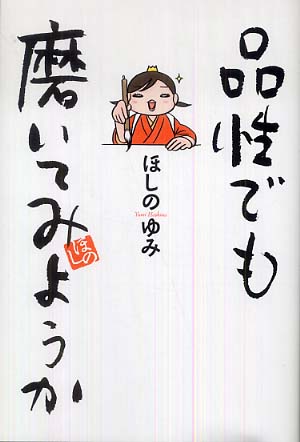 品性でも
磨いてみようか
ほしの ゆみ
Yumi Hoshino
ほしの